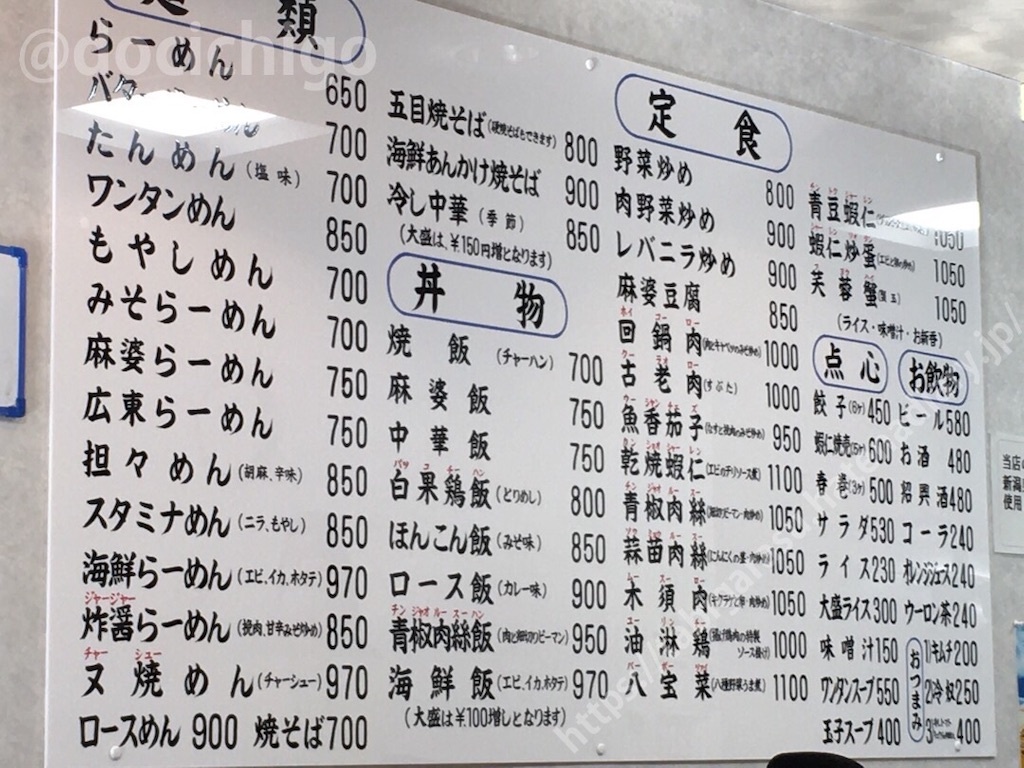 @docichigo
類
らーめん 650
バター 700
たんめん(塩味) 700
ワンタンめん 850
もやしめん 700
みそらーめん 700
麻婆らーめん 750
広東らーめん 750
担々めん(胡麻、辛味) 850
スタミナめん(ニラ、もやし) 850
海鮮らーめん(エビ、イカ、ホタテ) 970
ジャージャー
炸醤らーめん(挽肉、甘辛みそ炒め) 850
チャー シュー
叉焼めん(チャーシュー) 970
ロースめん 900 焼そば 700
五目焼そば(硬焼そばもできます) 800
海鮮あんかけ焼そば 900
冷し中華(季節) 850
(大盛は、¥150円増となります)
丼物
焼飯(チャーハン) 700
麻婆飯 750
中華飯 750
白果鶏飯(とりめし) 800
ほんこん飯(みそ味) 850
ロース飯(カレー味) 900
チンジャオルースーハン
青椒肉絲飯(肉と細切りピーマン) 950
海鮮飯(エビ、イカ、ホタテ) 970
(大盛は¥100増しとなります)
定食
野菜炒め 800
肉野菜炒め 900
レバニラ炒め 900
麻婆豆腐 850
ホイコーロー
回鍋肉 1000
古老肉(すぶた) 1000
魚香茄子(なすと挽肉のみそ炒め) 950
乾焼蝦仁(エビのチリソース煮) 1100
青椒肉絲 1050
蒜苗肉絲(にんにくの茎・肉炒め) 1050
ムースーロー
木須肉(キクラゲと卵・肉炒め) 1050
油淋鶏(揚げ鶏肉の特製ソース掛け) 1000
八宝菜(八種野菜うま煮) 1100
青豆蝦仁 1050
蝦仁炒蛋(エビと卵の炒め) 1050
芙蓉蟹(蟹玉) 1050
(ライス・味噌汁・お新香)
点心
餃子(6ケ) 450
蝦仁焼売(5ケ) 600
春巻(3ケ) 500
サラダ 530
ライス 230
大盛ライス 300
味噌汁 150
ワンタンスープ 550
玉子スープ 400
お飲物
ビール 580
お酒 480
紹興酒 480
コーラ 240
オレンジジュース 240
ウーロン茶 240
おつまみ
1)キムチ 200
2)冷奴 250
3) 400
当店
新潟
使用